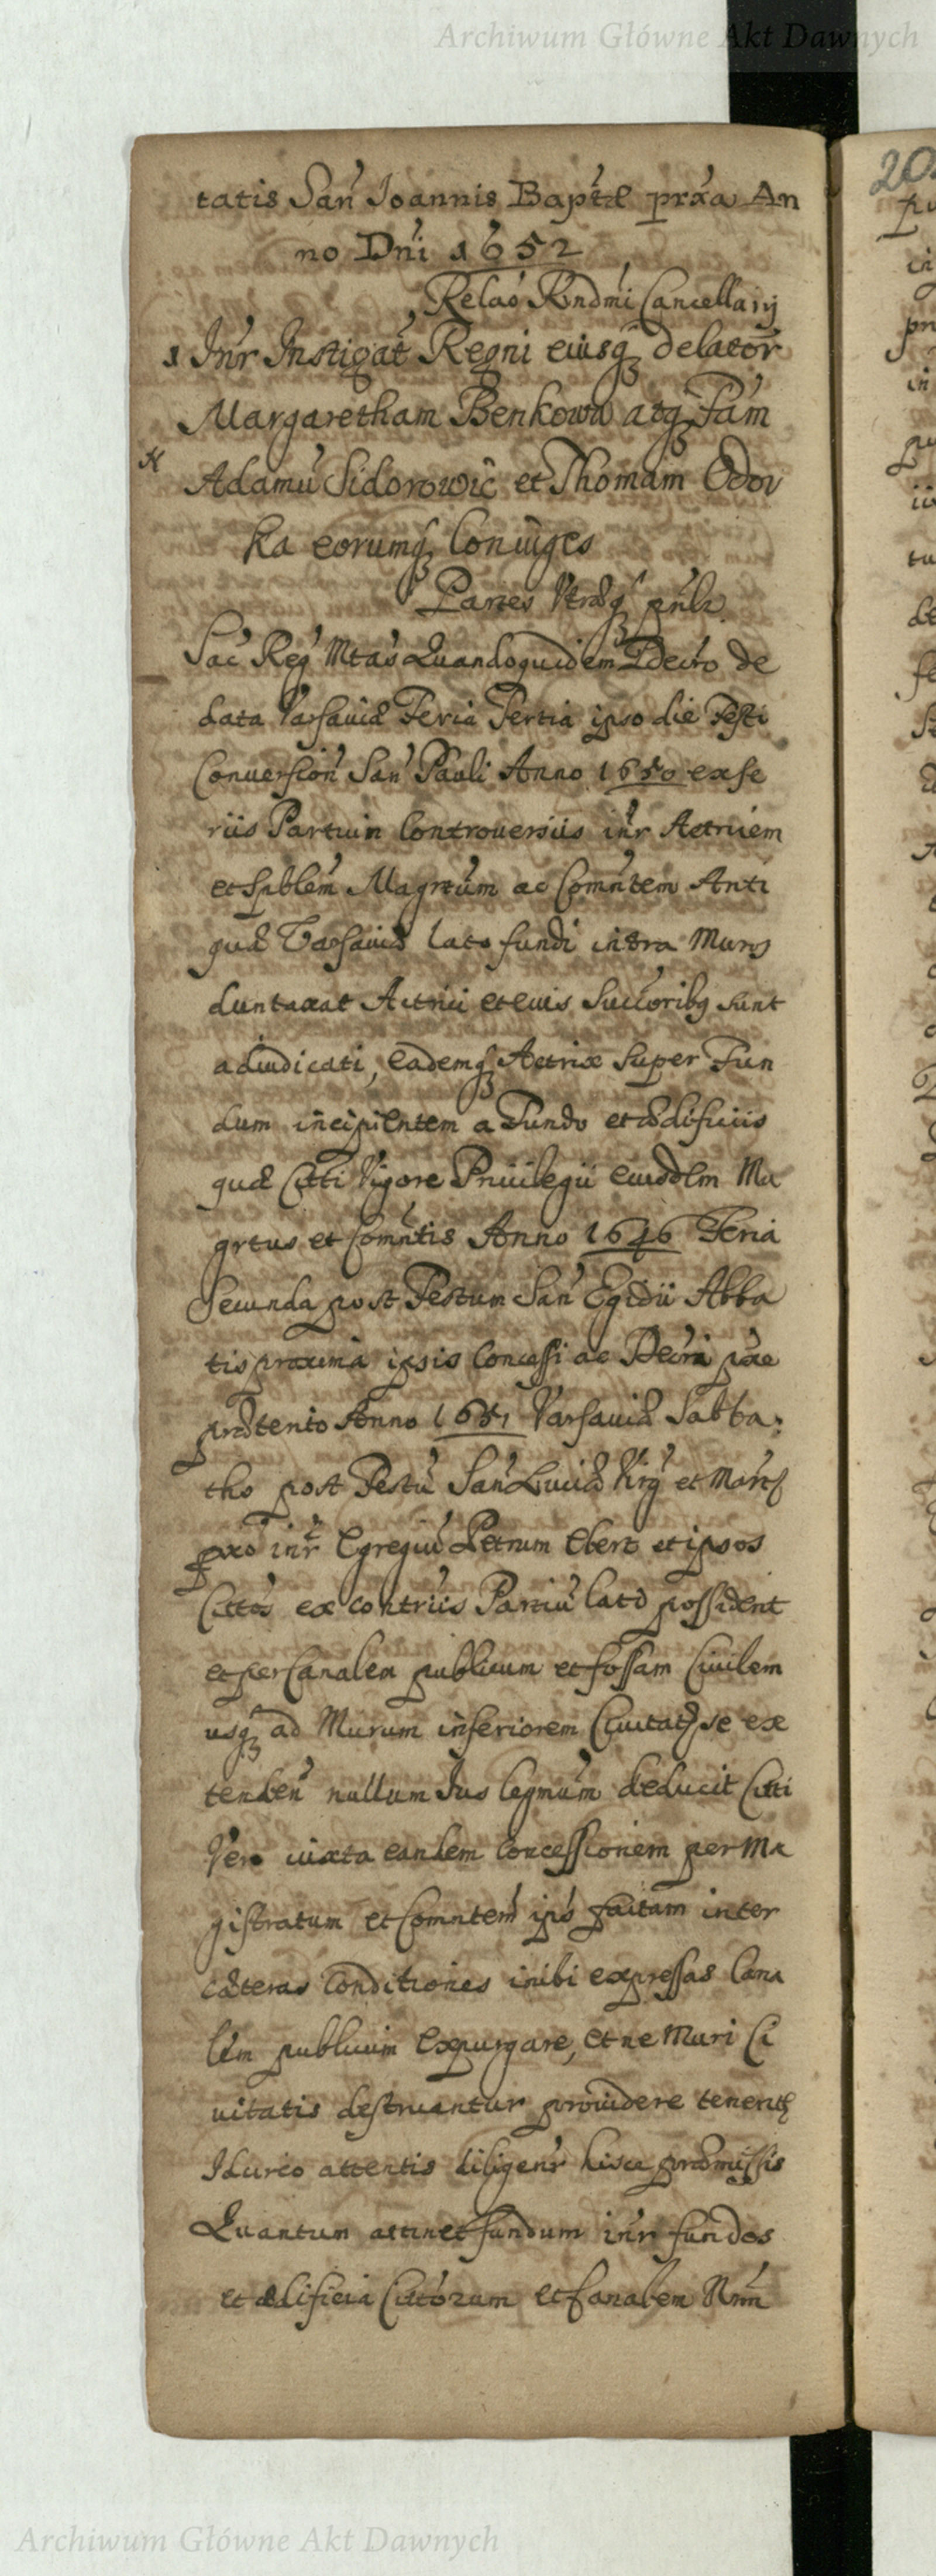 Archiwum Główne Akt Dawnych
20
tatis San Joannis Bapt͞æ prxa An
no Dni 1652
Relaõ Rndmi Cancellarij
1 Inr Instigat Regni eiusq delator
Margaretham Benkowa atq Fam
Adamu Sidorowic et Thomam Odov
ka eorumq Coniuges
Partes Utræq pnłr
Sac Reg Mtas Quandoquidem Decto de
data Varsaviæ Feria Tertia ipso die Festi
Conversion San Pauli Anno 1650 ex se
riis Partium Controversiis inr Actricem
et Spblem Magrtum ac Comntem Anti
quæ Varsaviæ lato fundi intra Muros
duntaxat Actrici et eius Succoribq sunt
adiudicati, eademq Actrix super Fun
dum incipientem a Fundo et ædificiis
quæ Citti Vigore Privilegii eiusdem Ma
grtus et Comntis Anno 1646 Feria
Secunda post Festum San Egidii Abba
tis proxima ipsis Concessi ac Decri
prætento Anno 1651 Varsaviæ Sabba
tho post Festu San Luciæ Virg et Mart
pxo inr Egregiu Petrum Ebert et ipsos
Cittos ex contriis Partiu lato possident
et per Canalem publicum et fossam Civilem
usq ad Murum inferiorem Civitatis se ex
tenden nullum Jus legmum deducit Citti
Vero iuxta eandem Concessionem per Ma
gistratum et Comntem ips factam inter
cæteras Conditiones inibi expressas Cana
lem publicum Expurgare, et ne Muri Ci
vitatis destruantur providere tenentr
Idcirco attentis diligenr hisce præmissis
Quantum attinet fundum inr fundos
et ædificia Cittorum et Canalem Nm
Archiwum Główne Akt Dawnych